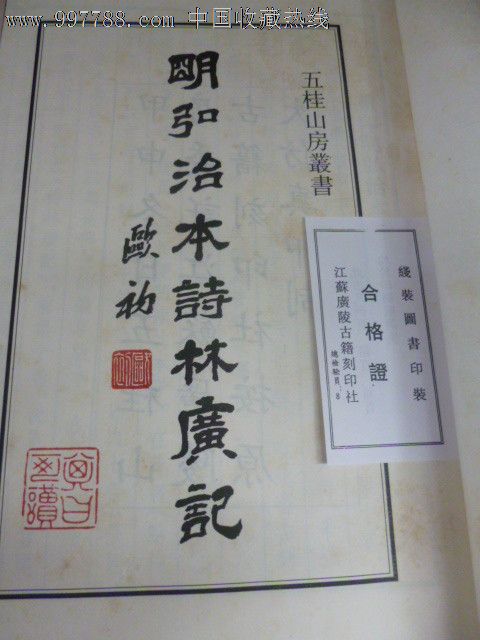 www.997788.com 中国收藏热线
五桂山房叢書
明弘治本詩林廣記
歐初
綫裝圖書印裝
合格證
江蘇廣陵古籍刻印社
總檢驗員：8